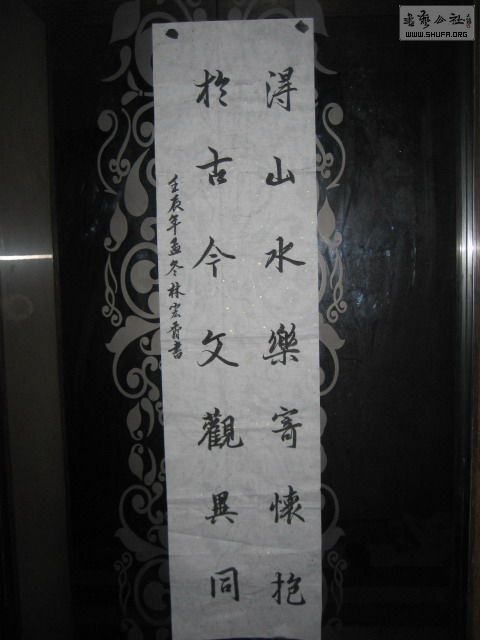 得山水樂寄懷抱
於古今文觀異同
壬辰年孟冬林宏霄書
書藝公社
WWW.SHUFA.ORG